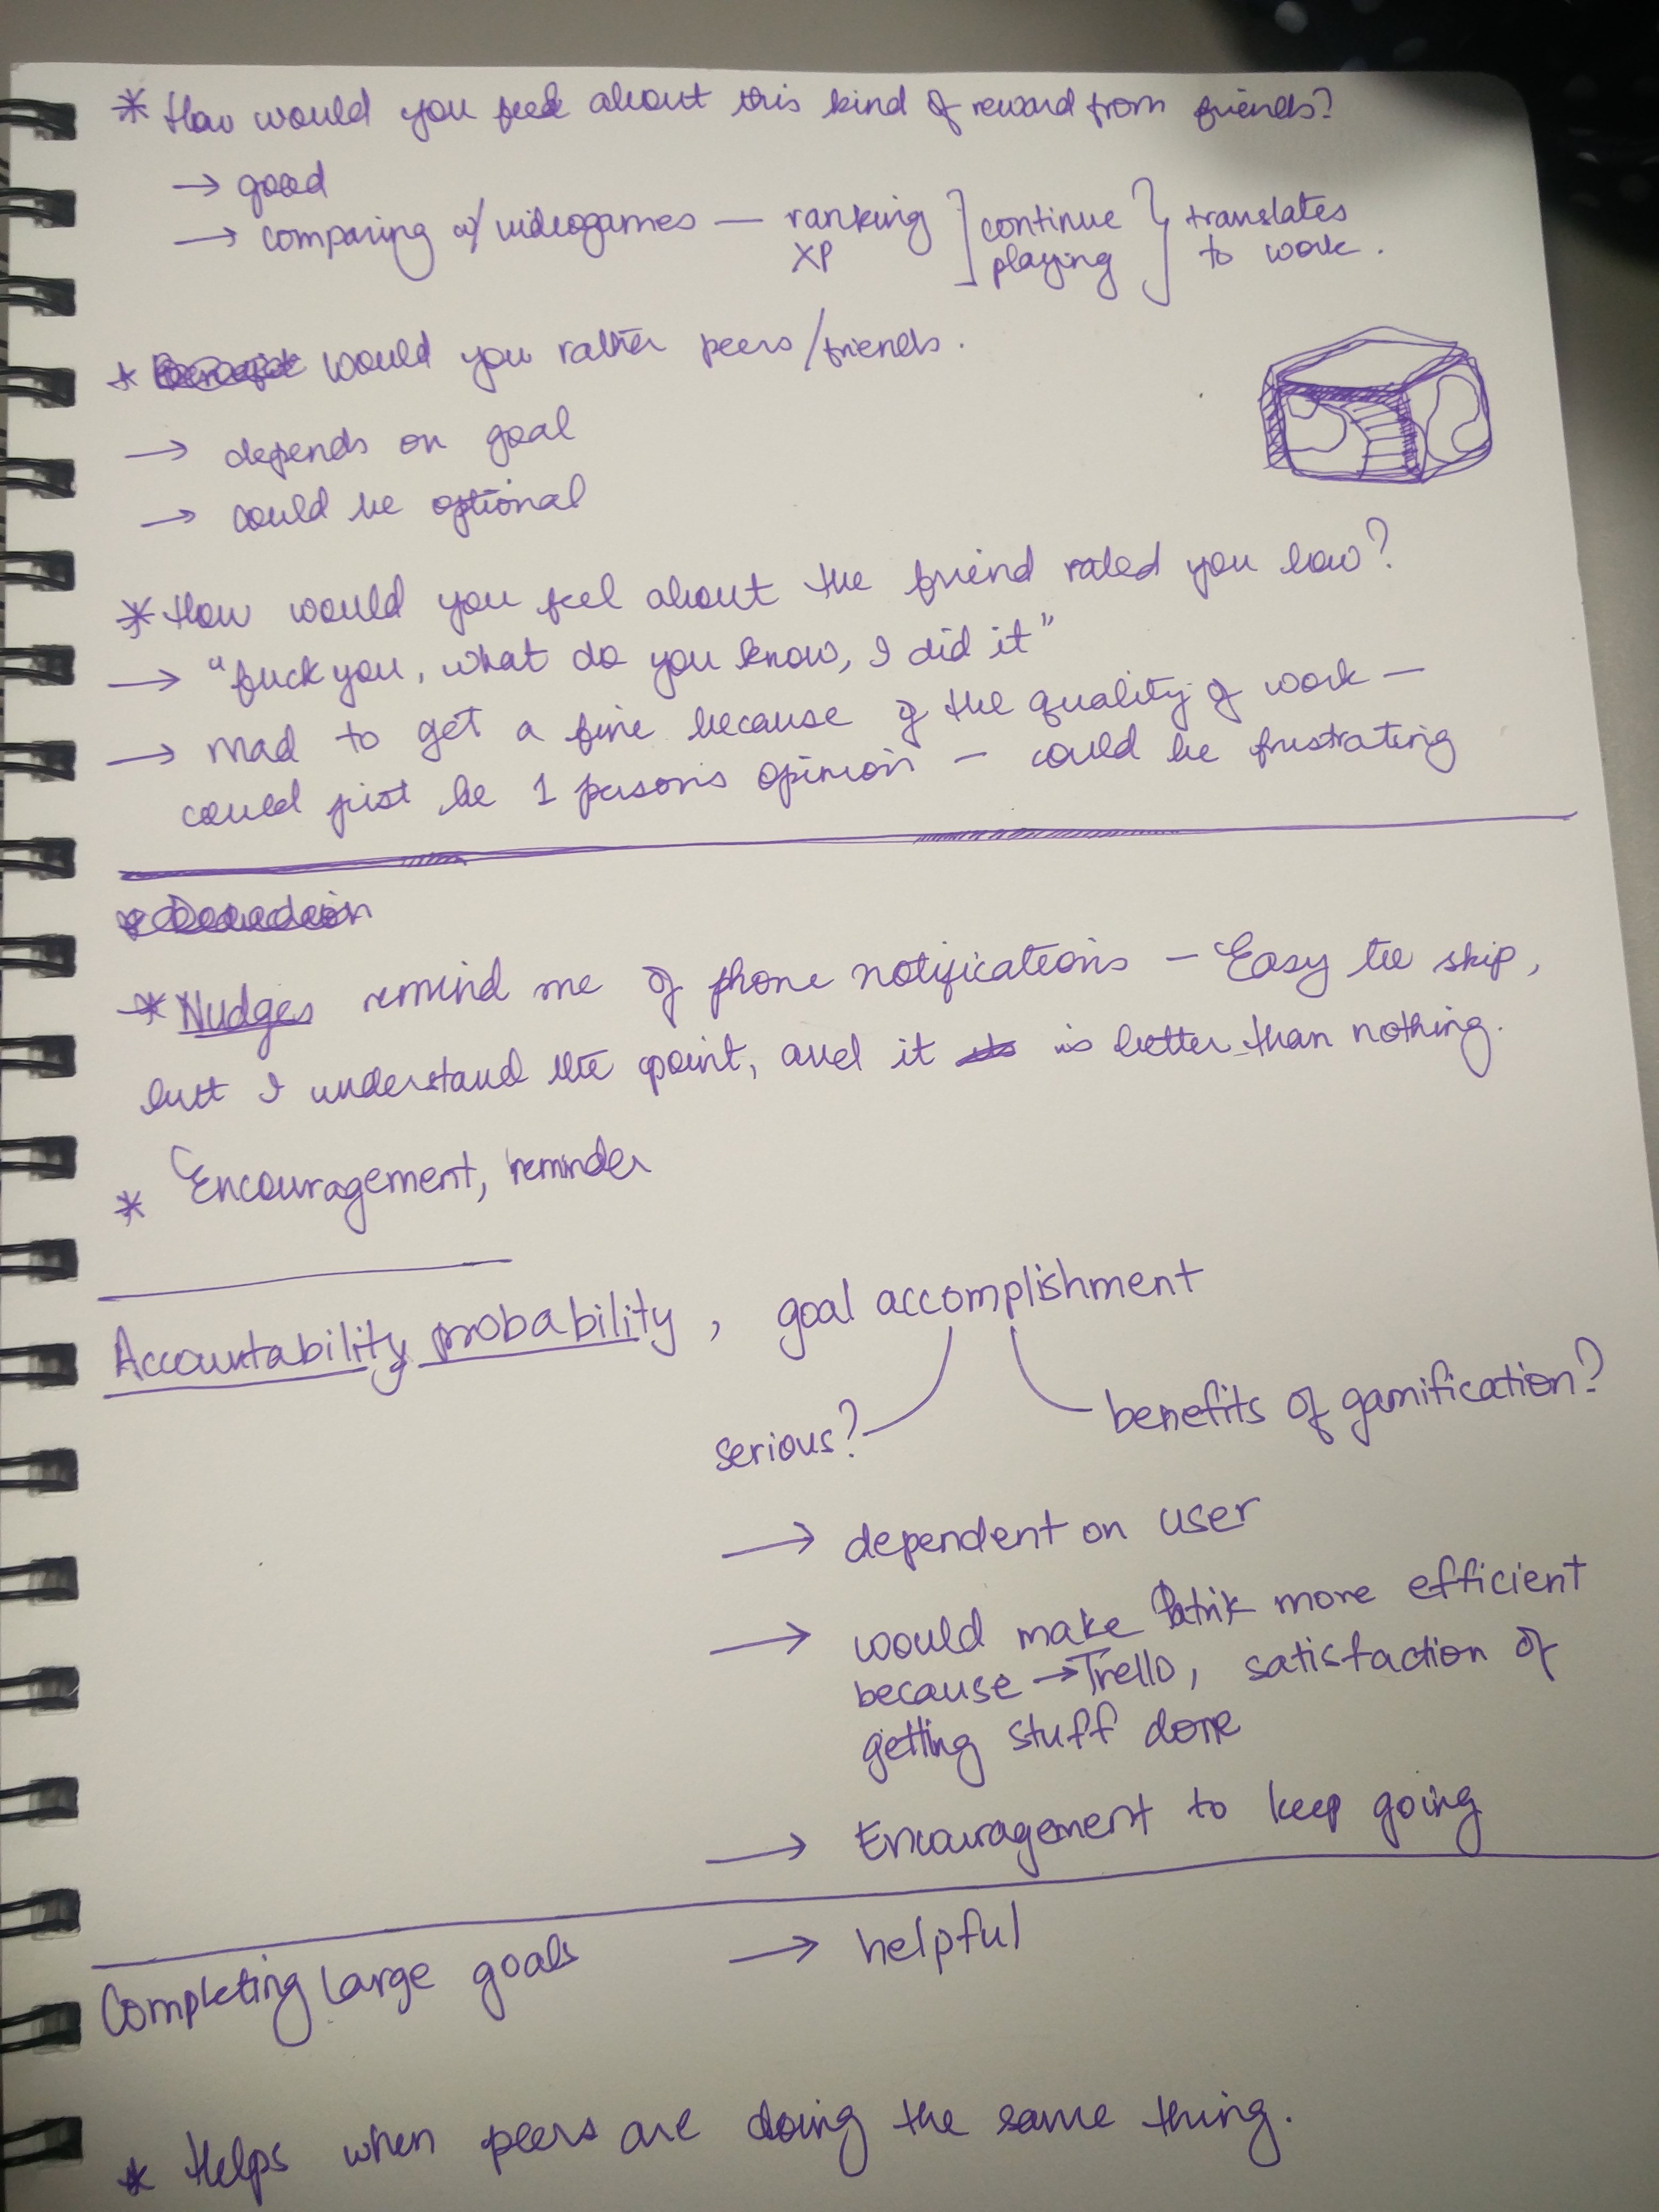 * How would you feel about this kind of reward from friends?
→ good
→ comparing w/ videogames — ranking ] continue } translates
XP playing to work.
* would you rather peers/friends.
→ depends on goal
→ could be optional
* How would you feel about the friend rated you low?
→ "fuck you, what do you know, I did it"
→ mad to get a fine because of the quality of work —
could just be 1 persons opinion — could be frustrating
* Nudges remind me of phone notifications — Easy to skip,
but I understand the point, and it is better than nothing.
* Encouragement, reminder
Accountability probability, goal accomplishment
serious? benefits of gamification?
→ dependent on user
→ would make Patrik more efficient
because → Trello, satisfaction of
getting stuff done
→ Encouragement to keep going
Completing large goals → helpful
* Helps when peers are doing the same thing.